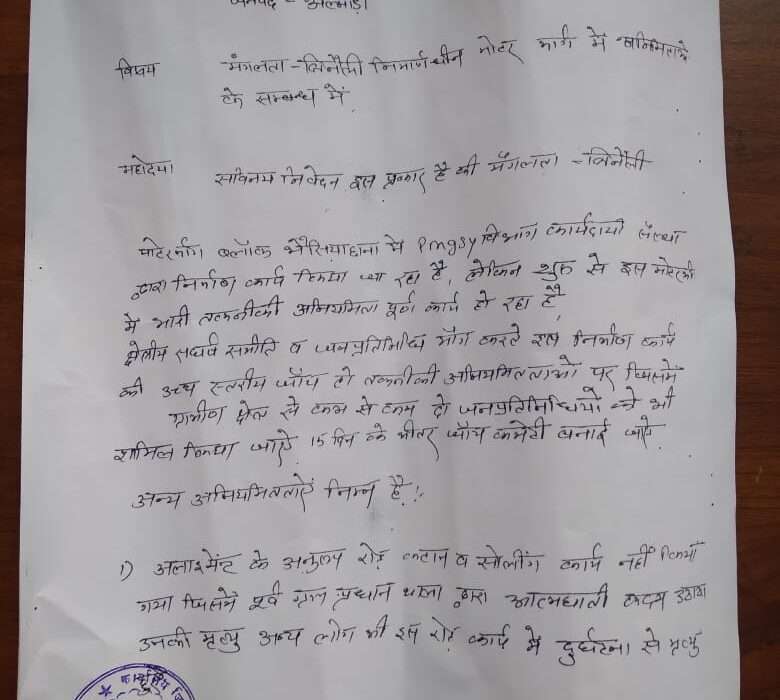 जनपद - अल्मोड़ा
विषय मंगलता - त्रिनौली निमार्णधीन मोटर मार्ग में अनिमितता
के सम्बन्ध में
महोदया
सविनय निवेदन इस प्रकार है की मंगलता - त्रिनौली
मोटरमार्ग ब्लॉक भैसियाछाना मे Pmgsy विभाग कार्यदायी संस्था
द्वारा निर्माण कार्य किया जा रहा है, लेकिन शुरू से इस मोटरमार्ग
में भारी तकनीकी अनियमिता पूर्ण कार्य हो रहा है
क्षेत्रीय संघर्ष समीति व जनप्रतिनिधि माँग करते इस निर्माण कार्य
की उच्च स्तरीय जाँच हो तकनीकी अनियमितताओं पर जिसमें
ग्रामीण क्षेत्र से कम से कम दो जनप्रतिनिधियों को भी
शामिल किया जाऐ 15 दिन के भीतर जाँच कमेटी बनाई जाऐ
अन्य अनियमितताऐं निम्न है!:
1) अलाइमेंट के अनुरूप रोड़ कटान व सोलींग कार्य नहीं किया
गया जिसमें पूर्व ग्राम प्रधान थाला द्वारा आत्मघाती कदम उठाया
उनकी मृत्यु अन्य लोग की इस रोड़ कार्य में दुर्घटना से मृत्यु